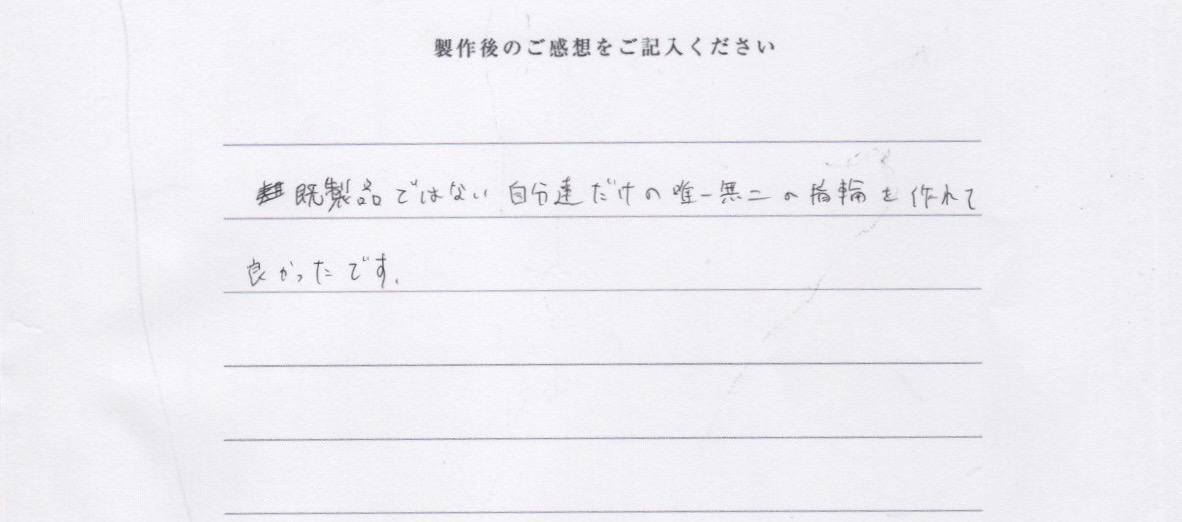 製作後のご感想をご記入ください
既製品ではない自分達だけの唯一無二の指輪を作れて
良かったです.